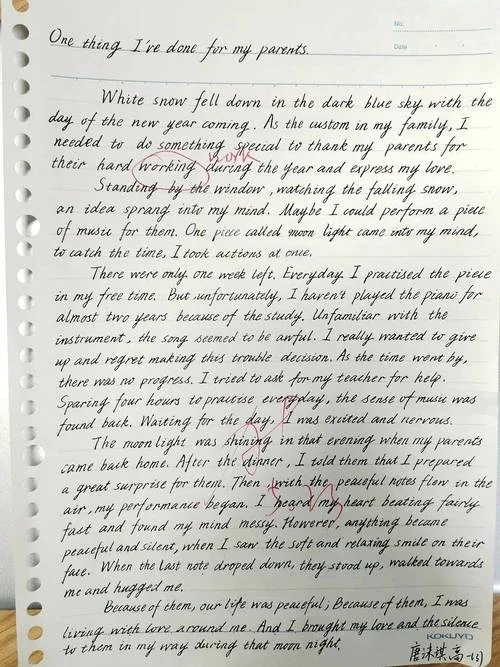 No.
Date
One thing I've done for my parents.
White snow fell down in the dark blue sky with the
day of the new year coming. As the custom in my family, I
needed to do something special to thank my parents for
work
their hard working during the year and express my love.
Standing by the window, watching the falling snow,
an idea sprang into my mind. Maybe I could perform a piece
of music for them. One piece called moon light came into my mind,
to catch the time, I took actions at once.
There were only one week left. Everyday I practised the piece
in my free time. But unfortunately, I haven't played the piano for
almost two years because of the study. Unfamiliar with the
instrument, the song seemed to be awful. I really wanted to give
up and regret making this trouble decision. As the time went by,
there was no progress. I tried to ask for my teacher for help.
Sparing four hours to practise everyday, the sense of music was
found back. Waiting for the day, I was excited and nervous.
The moon light was shining in that evening when my parents
came back home. After the dinner, I told them that I prepared
a great surprise for them. Then with the peaceful notes flew in the
air, my performance began. I heard my heart beating fairly
fast and found my mind messy. However, anything became
peaceful and silent, when I saw the soft and relaxing smile on their
face. When the last note droped down, they stood up, walked towards
me and hugged me.
Because of them, our life was peaceful; Because of them, I was
living with love around me. And I brought my love and the silence
to them in my way during that moon night.
KOKUYO